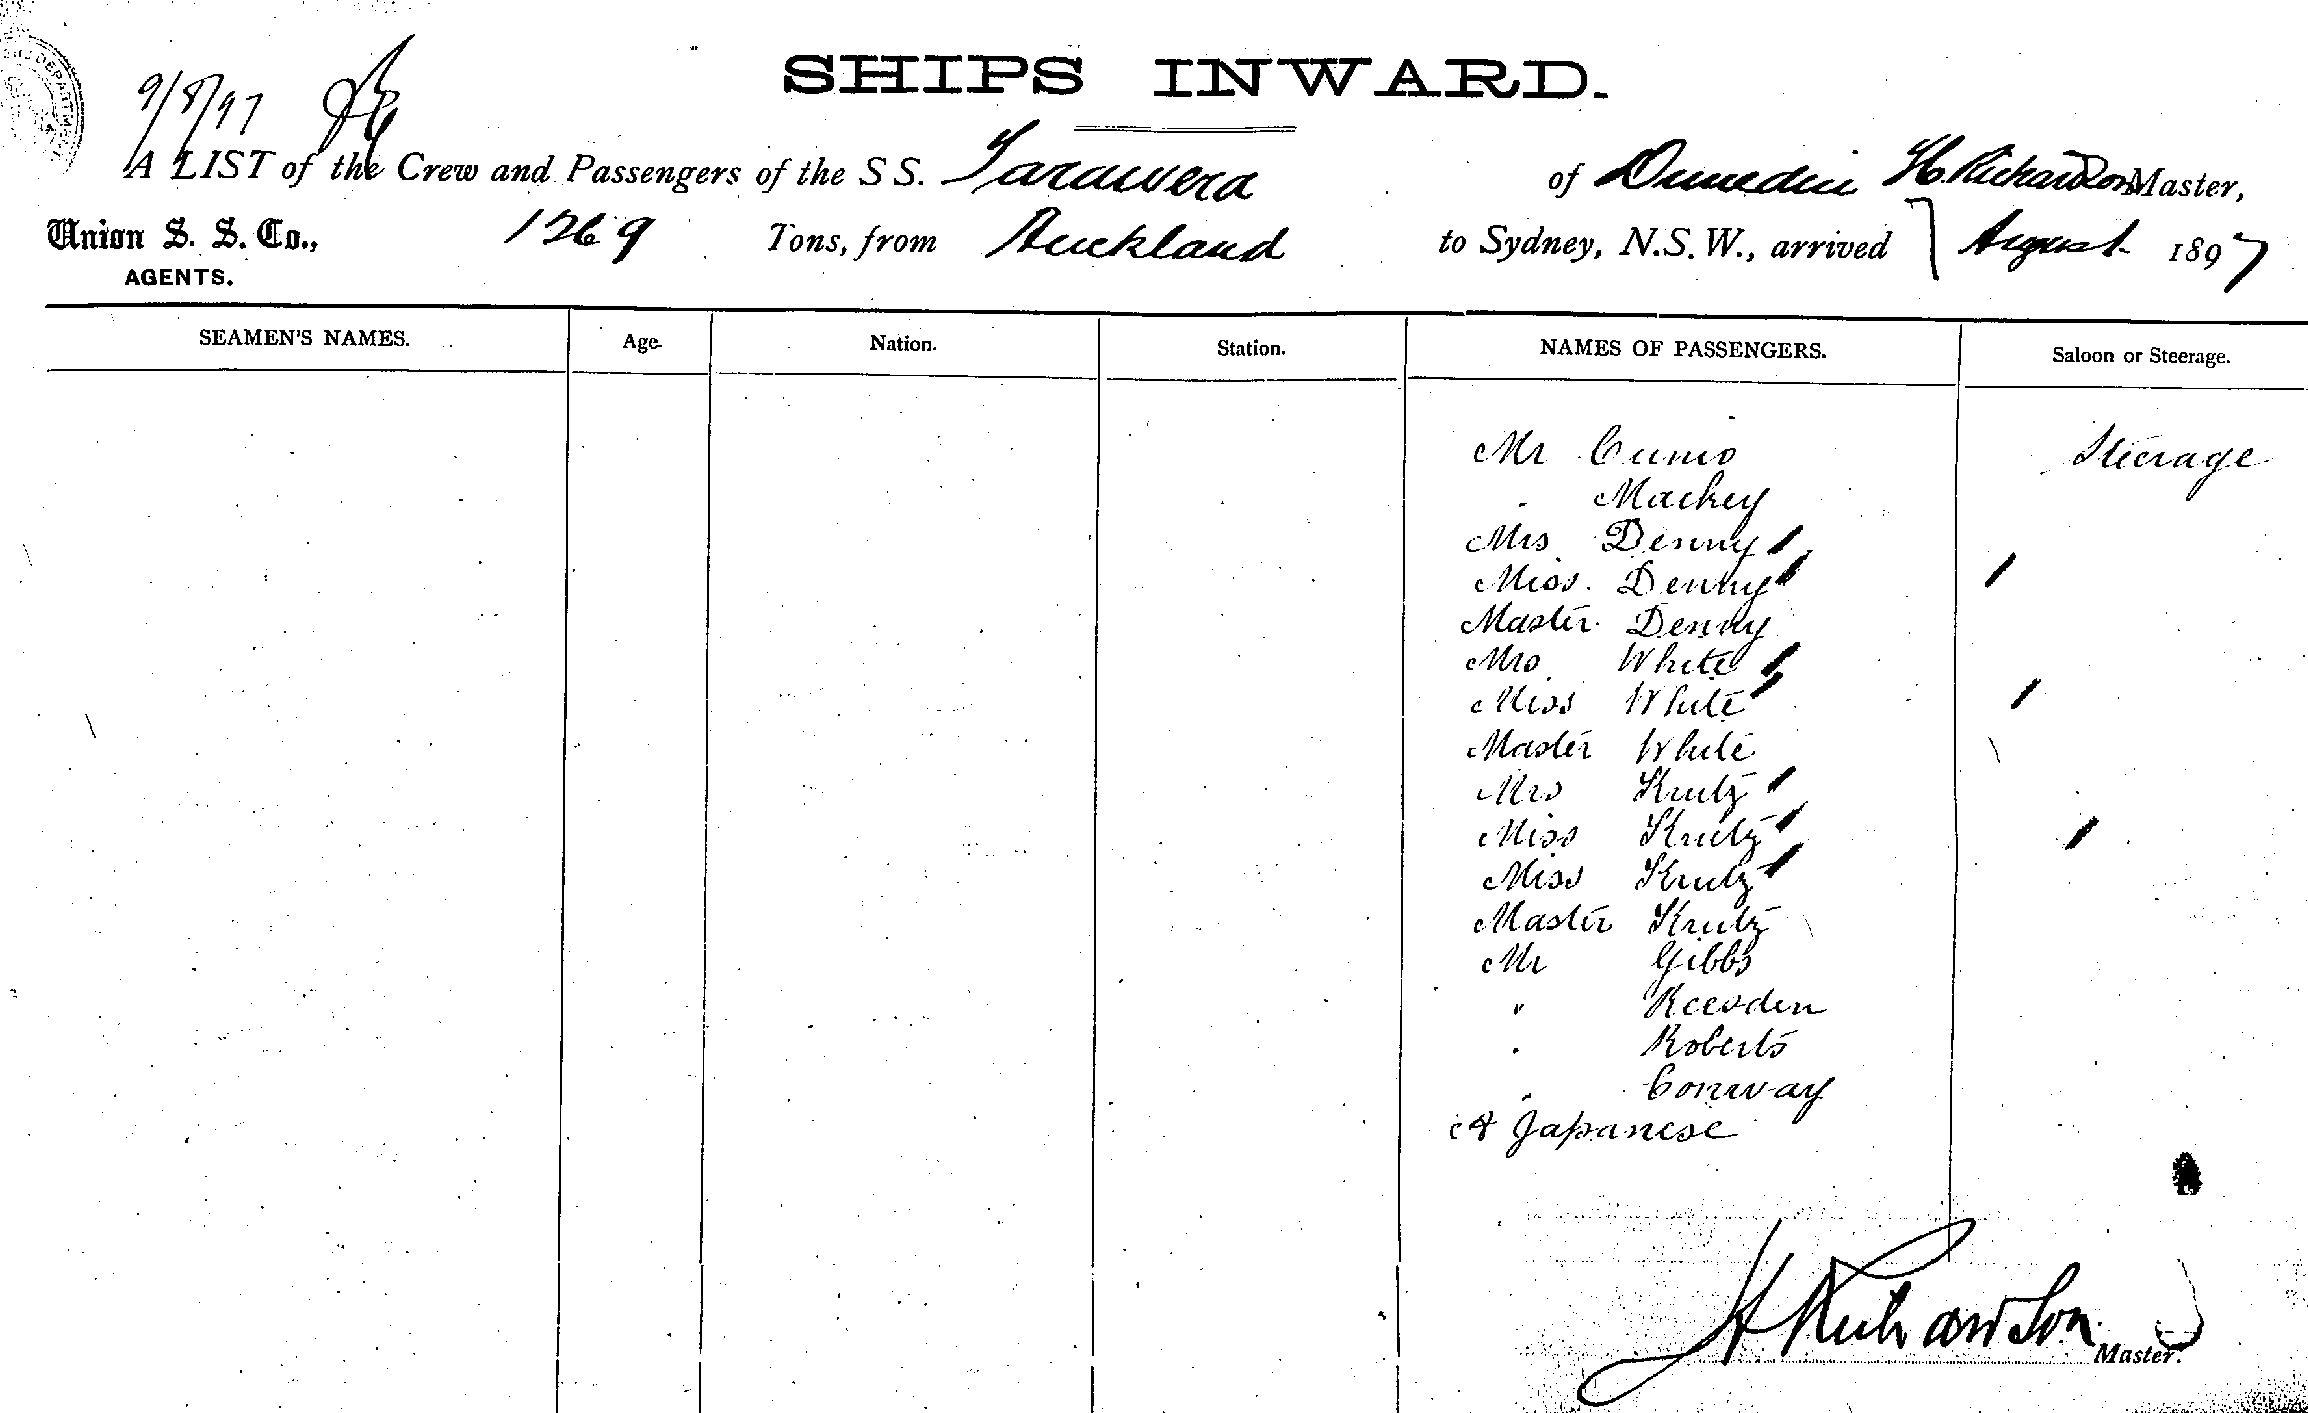 SHIPS INWARD.
9/8/97
A LIST of the Crew and Passengers of the S S. Tarawera of Dunedin H. Richardson Master,
Union S. S. Co., 1269 Tons, from Auckland to Sydney, N.S.W., arrived 7 August 1897
AGENTS.
SEAMEN'S NAMES. Age. Nation. Station. NAMES OF PASSENGERS. Saloon or Steerage.
Mr Cunio Steerage
" Mackey
Mrs Denny
Miss. Denny
Master Denny
Mrs White
Miss White
Master White
Mrs Krutz
Miss Krutz
Miss Krutz
Master Krutz
Mr Gibbs
" Reesden
" Roberts
" Conway
Japanese
H Richardson
Master.